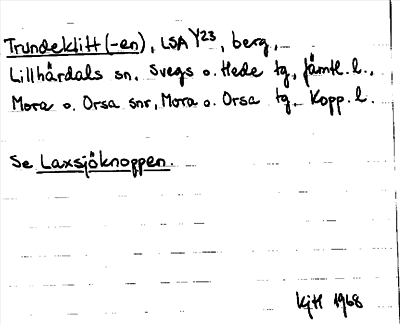 Trundeklitt (-en), LSA Y23, berg,
Lillhärdals sn, Svegs o. Hede tg, Jämtl. l.,
Mora o. Orsa snr, Mora o. Orsa tg, Kopp. l.
Se Laxsjöknoppen.
KjH 1968